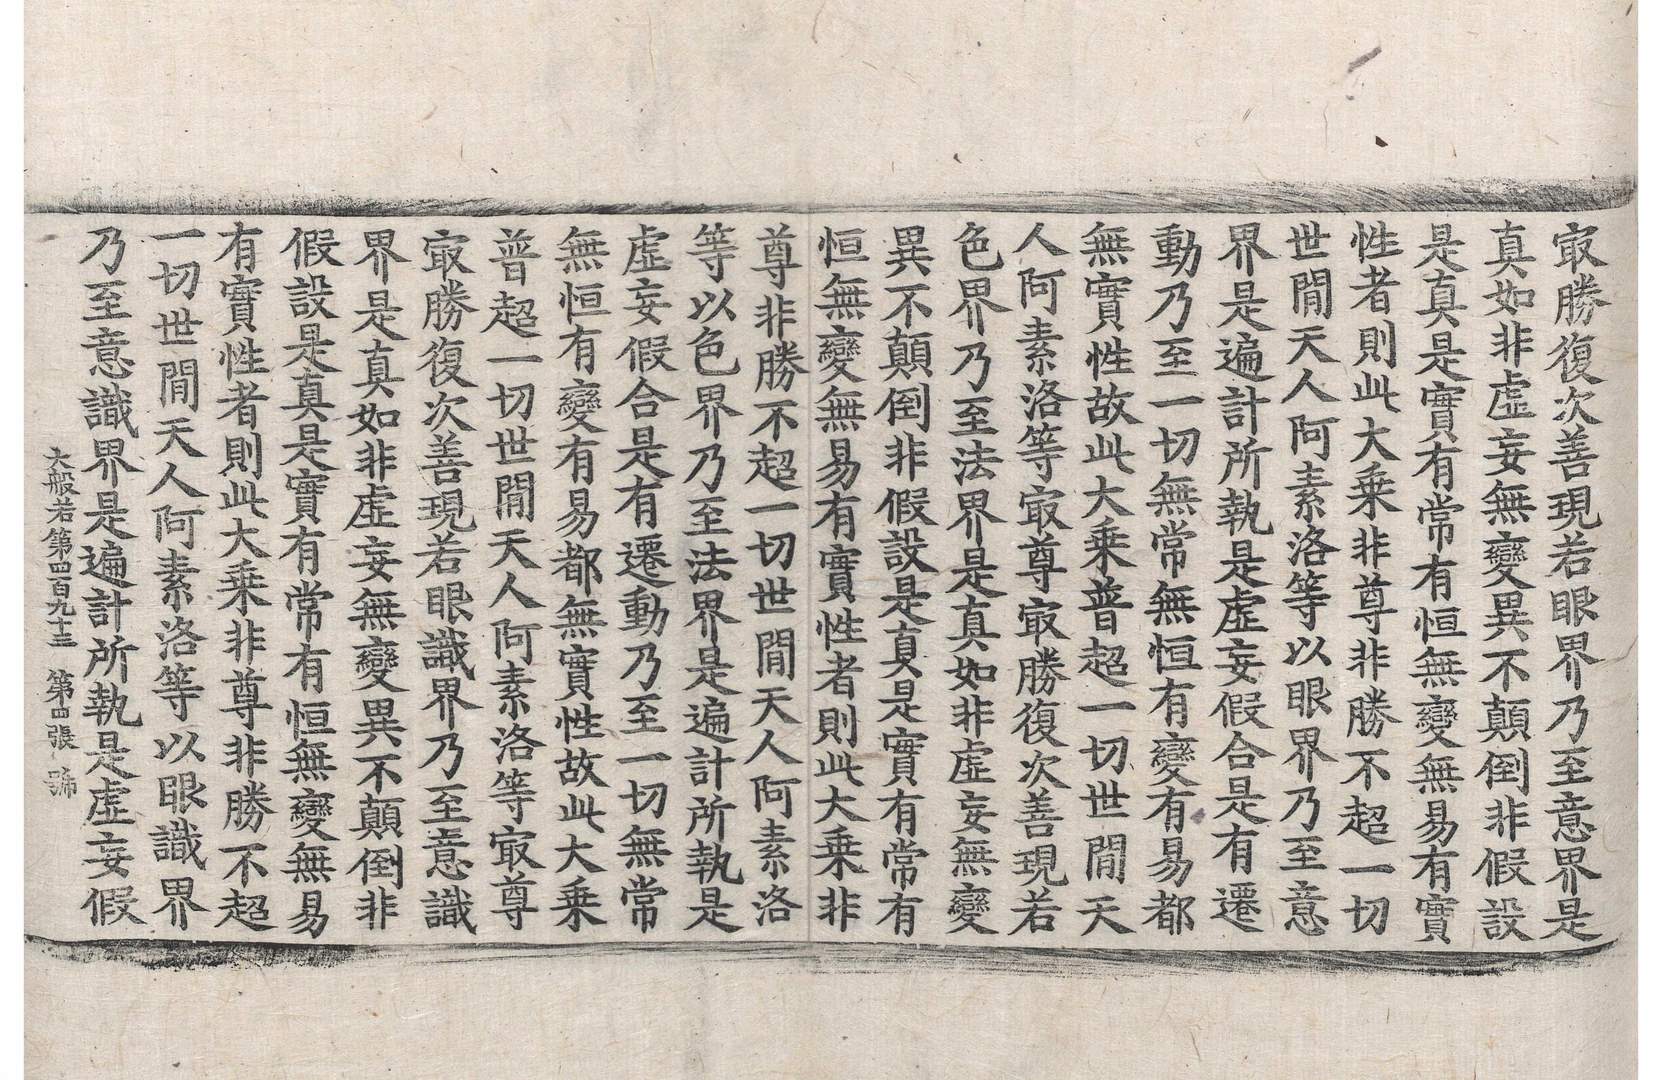 冣勝復次善現若眼界乃至意界是
真如非虛妄無變異不顛倒非假設
是真是實有常有恒無變無易有實
性者則此大乘非尊非勝不超一切
世間天人阿素洛等以眼界乃至意
界是遍計所執是虛妄假合是有遷
動乃至一切無常無恒有變有易都
無實性故此大乘普超一切世間天
人阿素洛等冣尊冣勝復次善現若
色界乃至法界是真如非虛妄無變
異不顛倒非假設是真是實有常有
恒無變無易有實性者則此大乘非
尊非勝不超一切世間天人阿素洛
等以色界乃至法界是遍計所執是
虛妄假合是有遷動乃至一切無常
無恒有變有易都無實性故此大乘
普超一切世間天人阿素洛等冣尊
冣勝復次善現若眼識界乃至意識
界是真如非虛妄無變異不顛倒非
假設是真是實有常有恒無變無易
有實性者則此大乘非尊非勝不超
一切世間天人阿素洛等以眼識界
乃至意識界是遍計所執是虛妄假
大般若第四百九十三 第四張 號